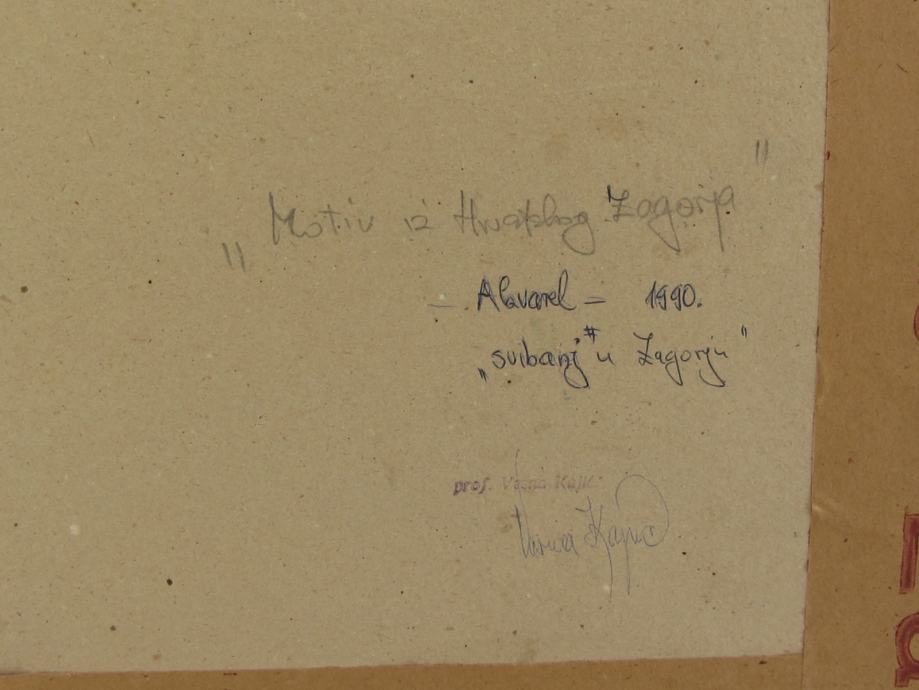 „Motiv iz Hrvatskog Zagorja"
- Akvarel - 1990.
„svibanj" u Zagorju"
prof. Vesna Kajić